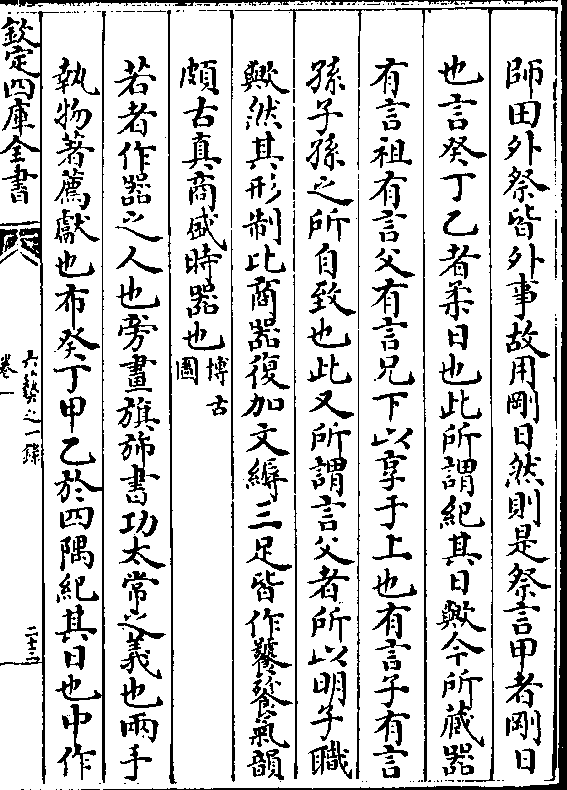 師田外祭皆外事故用剛日然則是祭言甲者剛日
也言癸丁乙者柔日也此所謂紀其日歟今所藏器
有言祖有言父有言兄下以享于上也有言子有言
孫子孫之所自致也此又所謂言父者所以明子職
歟然其形制比商器復加文縟三足皆作饕餮氣韻
頗古真商盛時器也博古圖
若者作器之人也旁畫旗旆書功太常之義也兩手
執物著薦獻也布癸丁甲乙於四隅紀其日也中作
欽定四庫全書
六藝之一錄
卷一
二十三